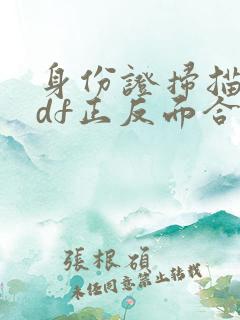 身份證掃描
df正反而合
張根碩
未經同意禁止轉載